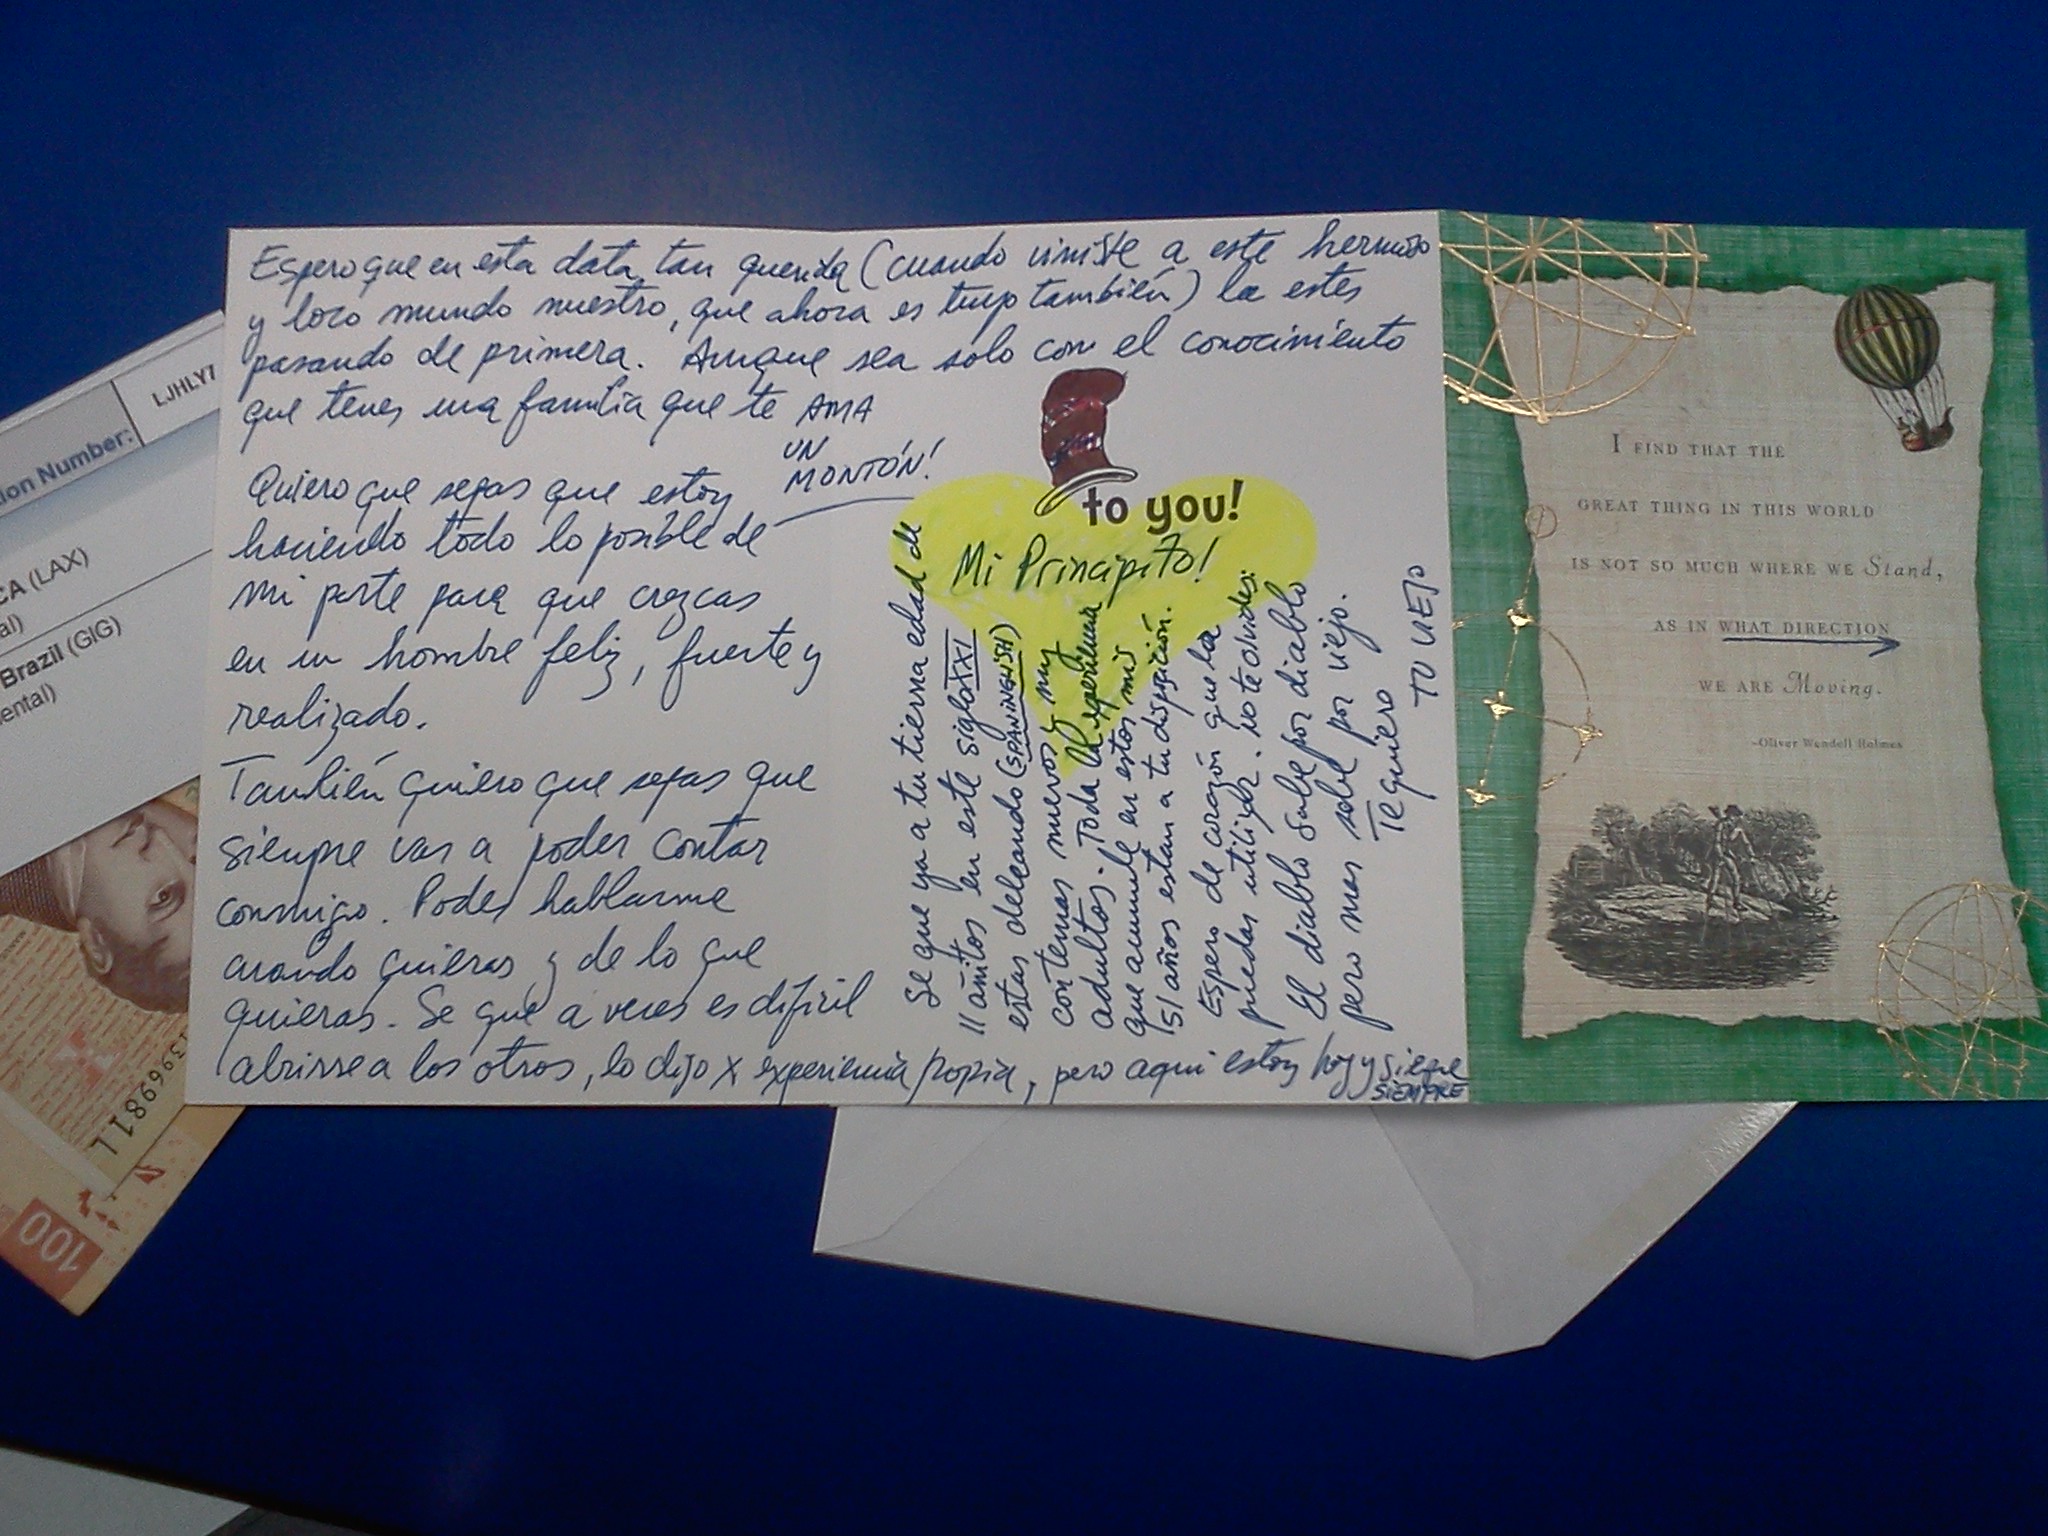 Espero que en esta data tan querida (cuando viniste a este hermoso
y loco mundo nuestro, que ahora es tuyo también) la estes
pasando de primera. Aunque sea solo con el conocimiento
que tenes una familia que te AMA
UN
MONTÓN!
Quiero que sepas que estoy
haciendo todo lo posible de
mi parte para que crezcas
en un hombre feliz, fuerte y
realizado.
También quiero que sepas que
siempre vas a poder contar
conmigo. Podes hablarme
cuando quieras y de lo que
quieras. Se que a veces es dificil
abrirse a los otros, lo dijo x experiencia propia, pero aqui estoy hoy y siempre
SIEMPRE
to you!
Mi Principito!
Se que ya a tu tierna edad de
11 añitos en este siglo XXI
estas deleando (SPANINGLISH)
con temas nuevos y muy
adultos. Toda la experiencia
que acumule en estos mis
51 años estan a tu disposición.
Espero de corazón que la
puedas utilizar. No te olvides:
El diablo sabe por diablo
pero mas sabe por viejo.
Te quiero
TU VIEJO
I FIND THAT THE
GREAT THING IN THIS WORLD
IS NOT SO MUCH WHERE WE Stand,
AS IN WHAT DIRECTION
WE ARE Moving.
-Oliver Wendell Holmes
ion Number:
LJHLY7
CA (LAX)
al)
Brazil (GIG)
ental)
100